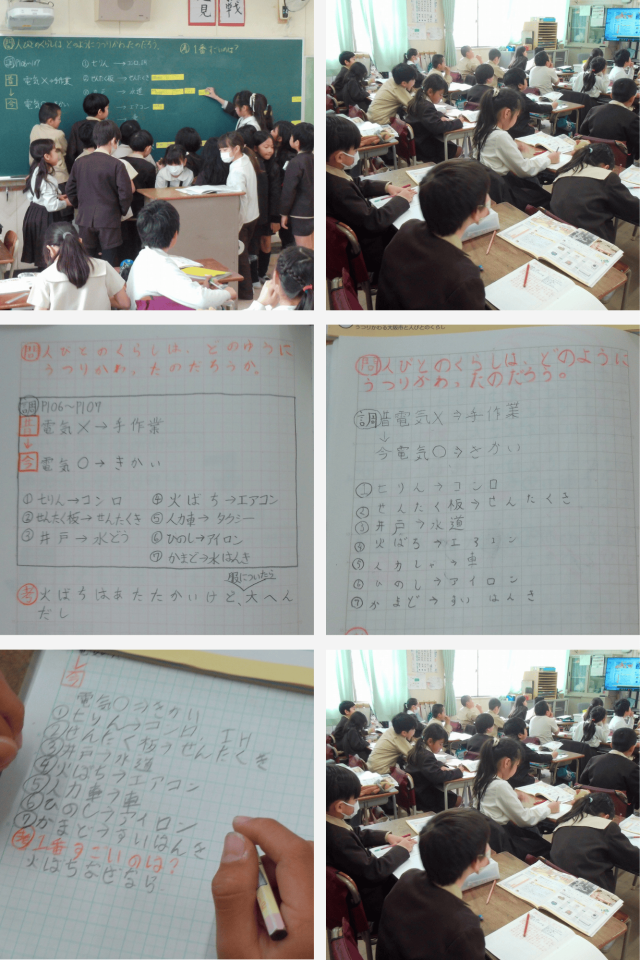 見
戦
問 人びとのくらしは、どのようにうつりかわったのだろう。
考 1番すごいのは?
調 P106~P109
昔 電気×→手作業
今 電気
① 七りん→コンロ
せんたく板→せんたくき
→水道
エアコン
問 人びとのくらしは、どのように
うつりかわったのだろうか。
調 P106~P109
昔 電気×→手作業
↓
今 電気○→きかい
①七りん→コンロ ④火ばち→エアコン
②せんたく板→せんたくき ⑤人力車→タクシー
③井戸→水どう ⑥ひのし→アイロン
⑦かまど→水はんき
考 火ばちはあたたかいけど、大へん
だし
うつりかわる大阪市と人びとのくらし
問 人びとのくらしは、どのように
うつりかわったのだろう。
調 昔電気×→手作業
↓
今電気○→きかい
①七りん→コンロ
②せんたく板→せんたくき
③井戸→水道
④火ばち→エアコン
⑤人力しゃ→車
⑥ひのし→アイロン
⑦かまど→すいはんき
電気○→きかい
①七りん→コンロ
②せんたく板→せんたくき
③井戸→水道
④火ばち→エアコン
⑤人力車→車
⑥ひのし→アイロン
⑦かまど→すいはんき
考 1番すごいのは?
火ばちなぜなら